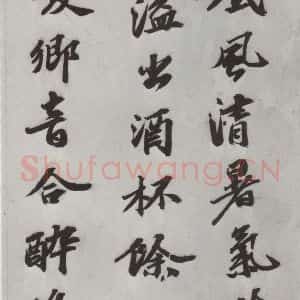 風清暑氣
溢出酒杯餘
鄉音合醉
ShufawangCN